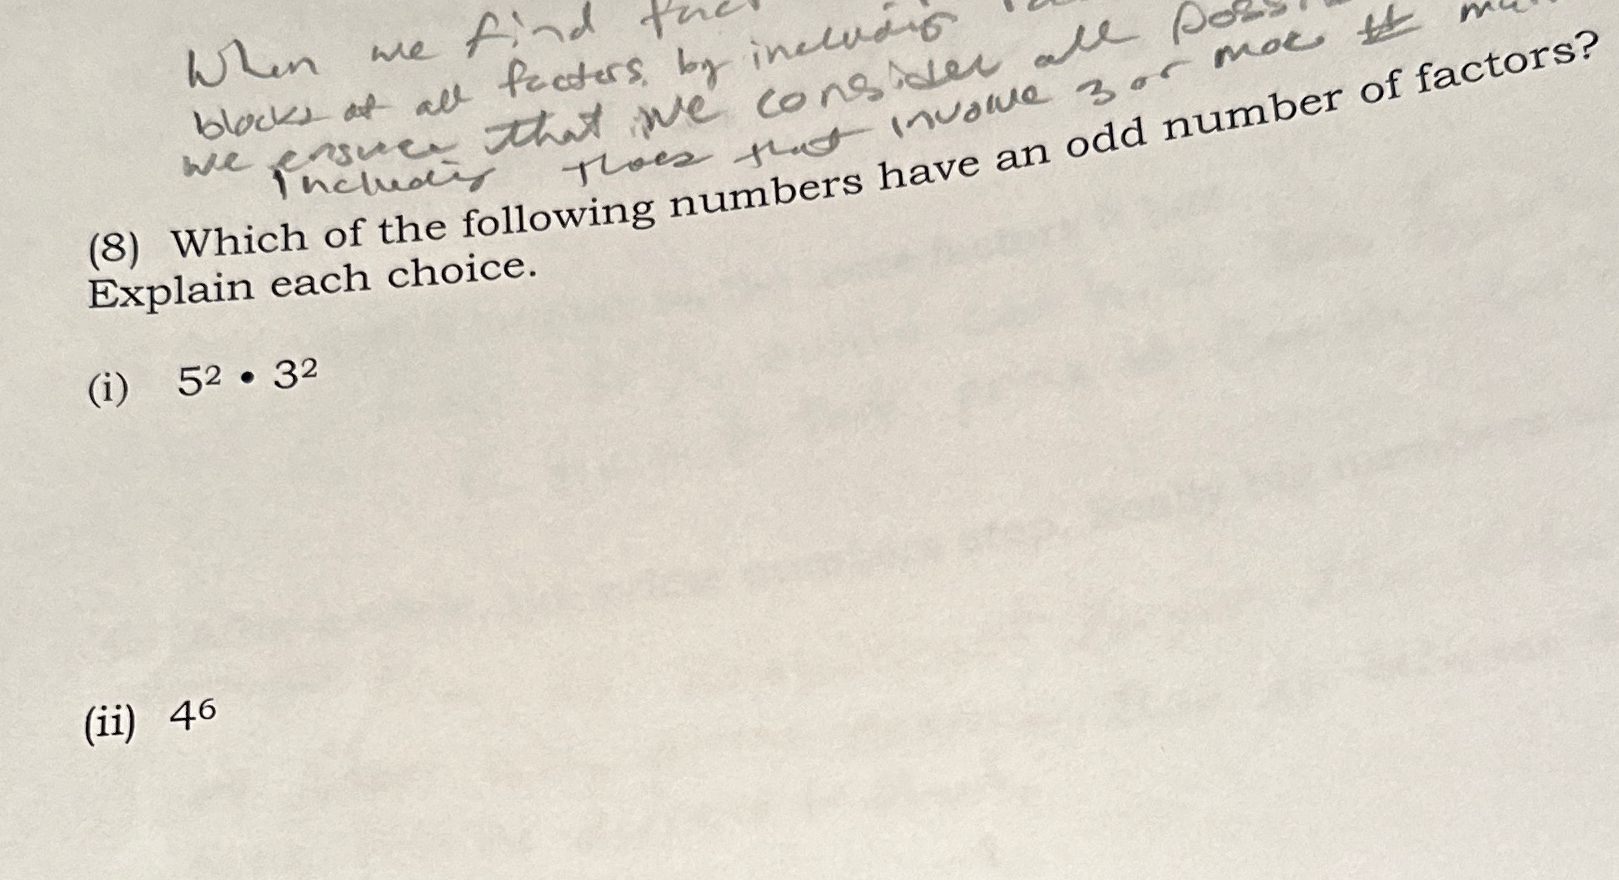 When we find
blocks of all factors, by includig
we ensuer that we consider all
Includig thoes that involve 3 or moe
(8) Which of the following numbers have an odd number of factors?
Explain each choice.
(i) 5² • 3²
(ii) 4⁶